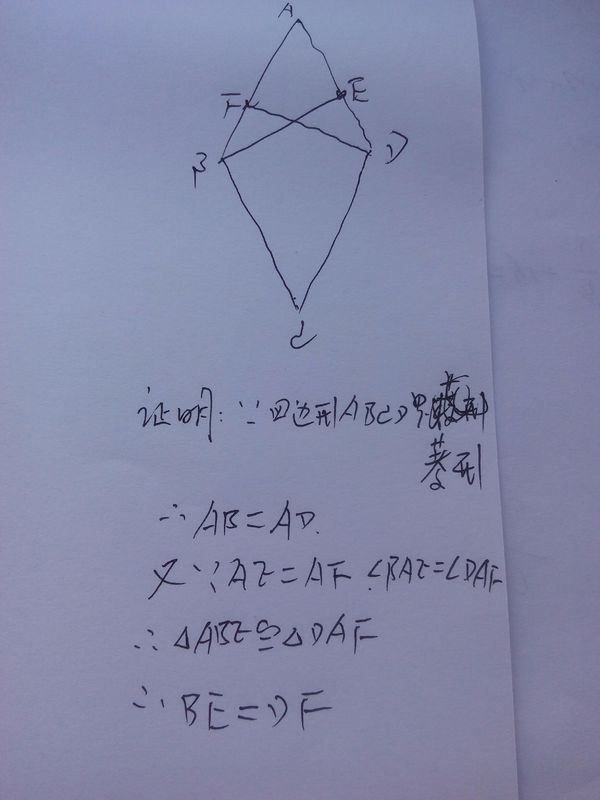 A
F
E
B
D
C
证明:∵四边形ABCD是
菱形
∴AB=AD.
又∵AE=AF ∠BAE=∠DAF
∴△ABE≌△DAF
∴BE=DF